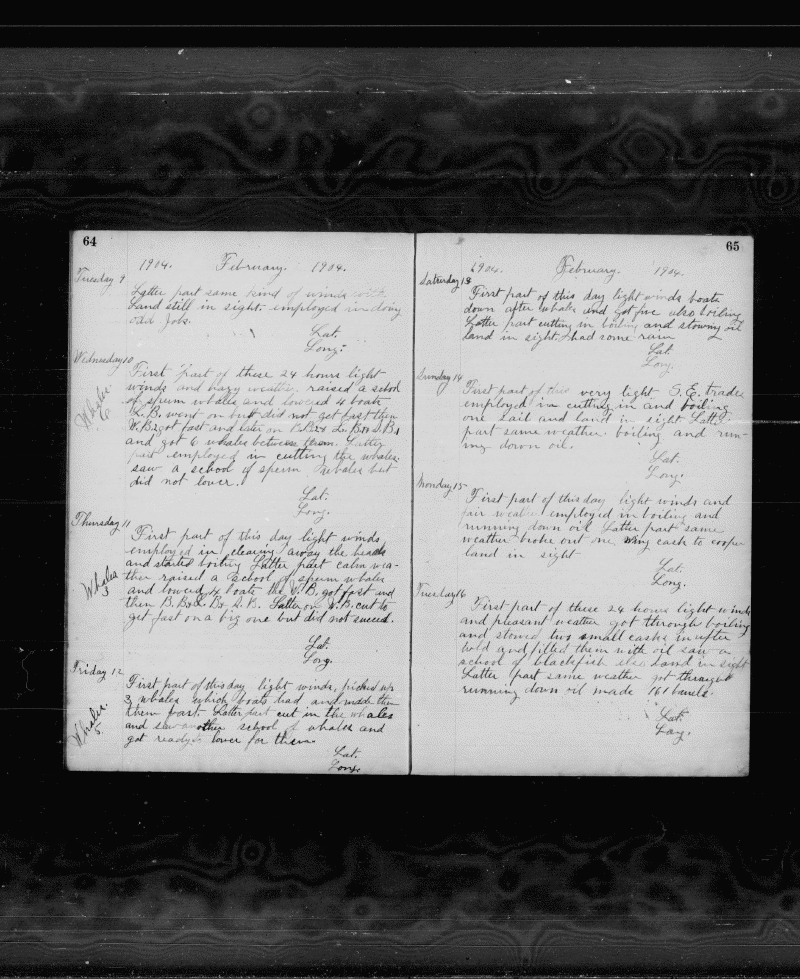 64
1904. February. 1904.
Tuesday 9
Latter part same kind of winds with
Land still in sight. employed in doing
odd jobs.
Lat.
Long:
Wednesday 10
Whales
6
First part of these 24 hours light
winds and hazy weather. raised a school
of sperm whales and lowered 4 boats
L.B. went on but did not get fast then
W.B. got fast and later on B.B. L.B. S.B.
and got 6 whales between them. Latter
part employed in cutting the whales.
saw a school of sperm whales but
did not lower.
Lat.
Long.
Thursday 11
Whales
3
First part of this day light winds
employed in clearing away the heads
and started boiling Latter part calm wea-
ther raised a school of sperm whales
and lowered 4 boats the W.B. got fast and
then B.B. L.B. S.B. Latter on W.B. cut to
get fast on a big one but did not succeed.
Lat.
Long.
Friday 12
Whales
5
First part of this day light winds, picked up
3 whales which boats had and made them
them fast. Latter part cut in the whales
and saw another school of whales and
got ready to lower for them.
Lat.
Long.
65
1904. February. 1904.
Saturday 13
First part of this day light winds boats
down after whales and got five also boiling
Latter part cutting in boiling and stowing oil
land in sight, had some rain
Lat.
Long.
Sunday 14
First part of this very light S.E. trades
employed in cutting in and boiling
one sail and land in sight Latter
part same weather. boiling and run-
ing down oil.
Lat.
Long.
Monday 15
First part of this day light winds and
fair weather employed in boiling and
running down oil Latter part same
weather broke out one wing cask to cooper
land in sight
Lat.
Long.
Tuesday 16
First part of these 24 hours light winds
and pleasant weather got through boiling
and stowed two small casks in after
hold and filled them with oil saw a
school of blackfish also Land in sight
Latter part same weather got through
running down oil made 161 barels
Lat.
Long.